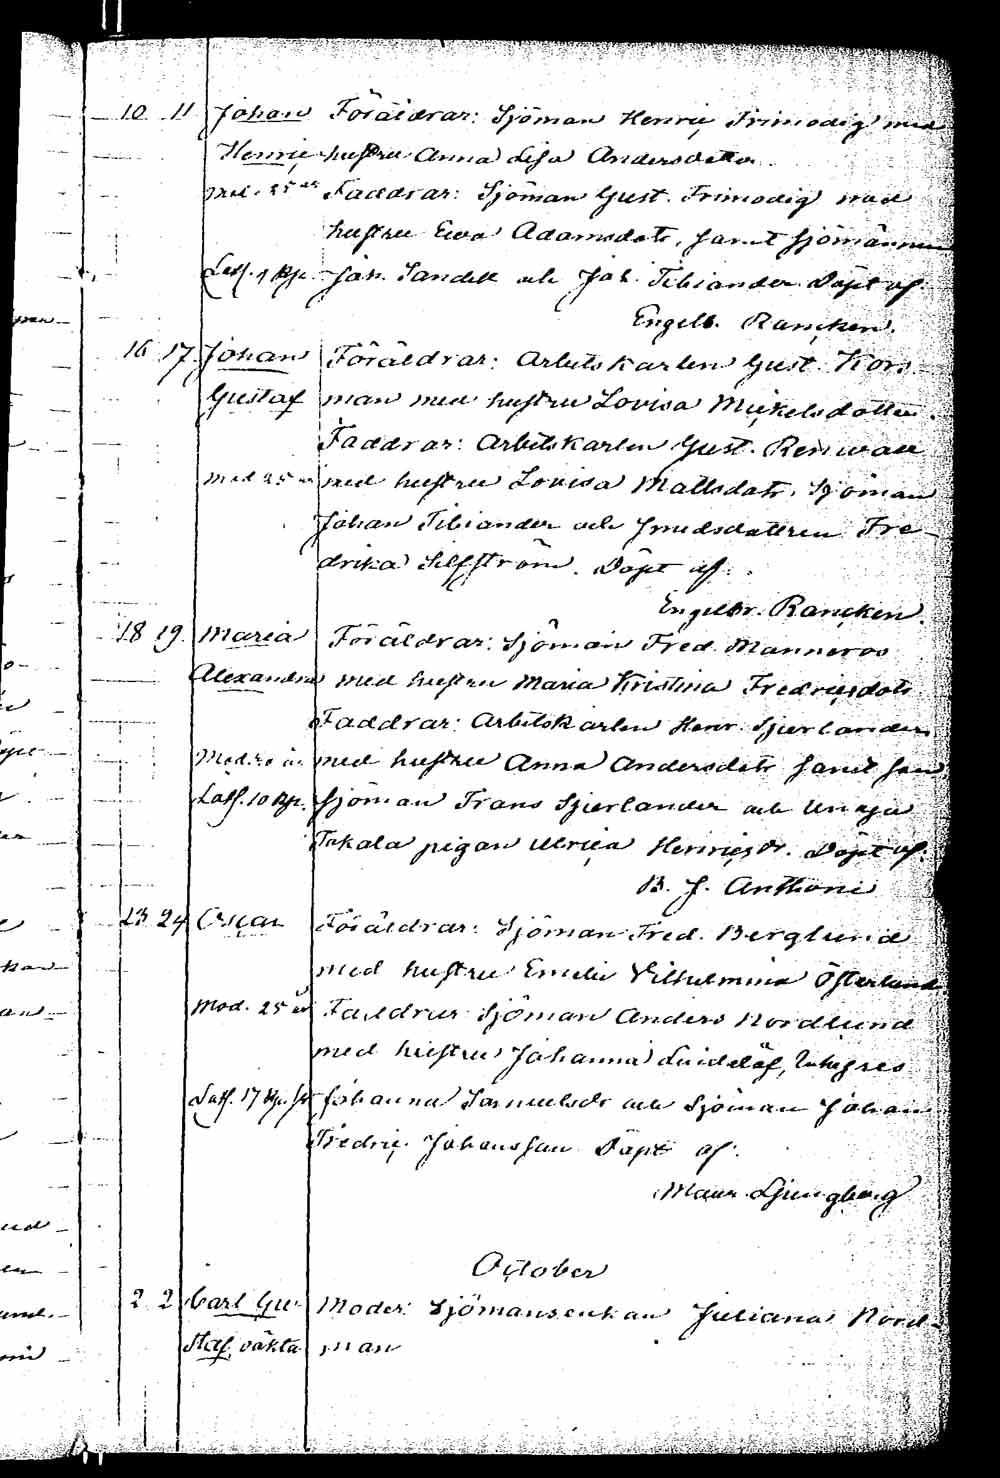 10 11 Johan Föräldrar: Sjöman Henric Frimodig med
Henric hustru Anna Lisa Andersdotter
mod. 25 år Faddrar: Sjöman Gust. Frimodig med
hustru Ewa Adamsdotr, samt sjömännen
Läsf. 9 Kp. Joh. Sandell och Joh. Tibiander. Döpt af
Engelb. Rancken.
16 17 Johan Föräldrar: Arbetskarlen Gust. Kors
Gustaf man med hustru Lovisa Mickelsdotter.
Faddrar: Arbetskarlen Gust. Renwall
mod 25 år med hustru Lovisa Mattsdotr, Sjöman
Johan Tibiander och smedsdottren Fre-
drika Silfström. Döpt af
Engelbr. Rancken.
18 19 Maria Föräldrar: Sjöman Fred. Manneros
Alexandra med hustru Maria Kristina Fredricsdotr
Faddrar: Arbetskarlen Henr. Sjerlander
Mod. år med hustru Anna Andersdotr samt
10 Kp. Sjöman Frans Sjerlander och
pigan Ulrica Henricsdr. Döpt af
B. J. Anthoni
23 24 Oscar Föräldrar: Sjöman Fred. Berglund
med hustru Emelie Vilhelmina Österlund
Mod. 25 år Faddrar Sjöman Anders Nordlund
med hustru Johanna
17 Kp. Johanna Samuelsdr och Sjöman Johan
Fredric Johansson Döpt af
Maur. Ljungberg
October
2 2 Carl Gu- Moder: Sjömansenkan Juliana Nord-
staf, oäkta man